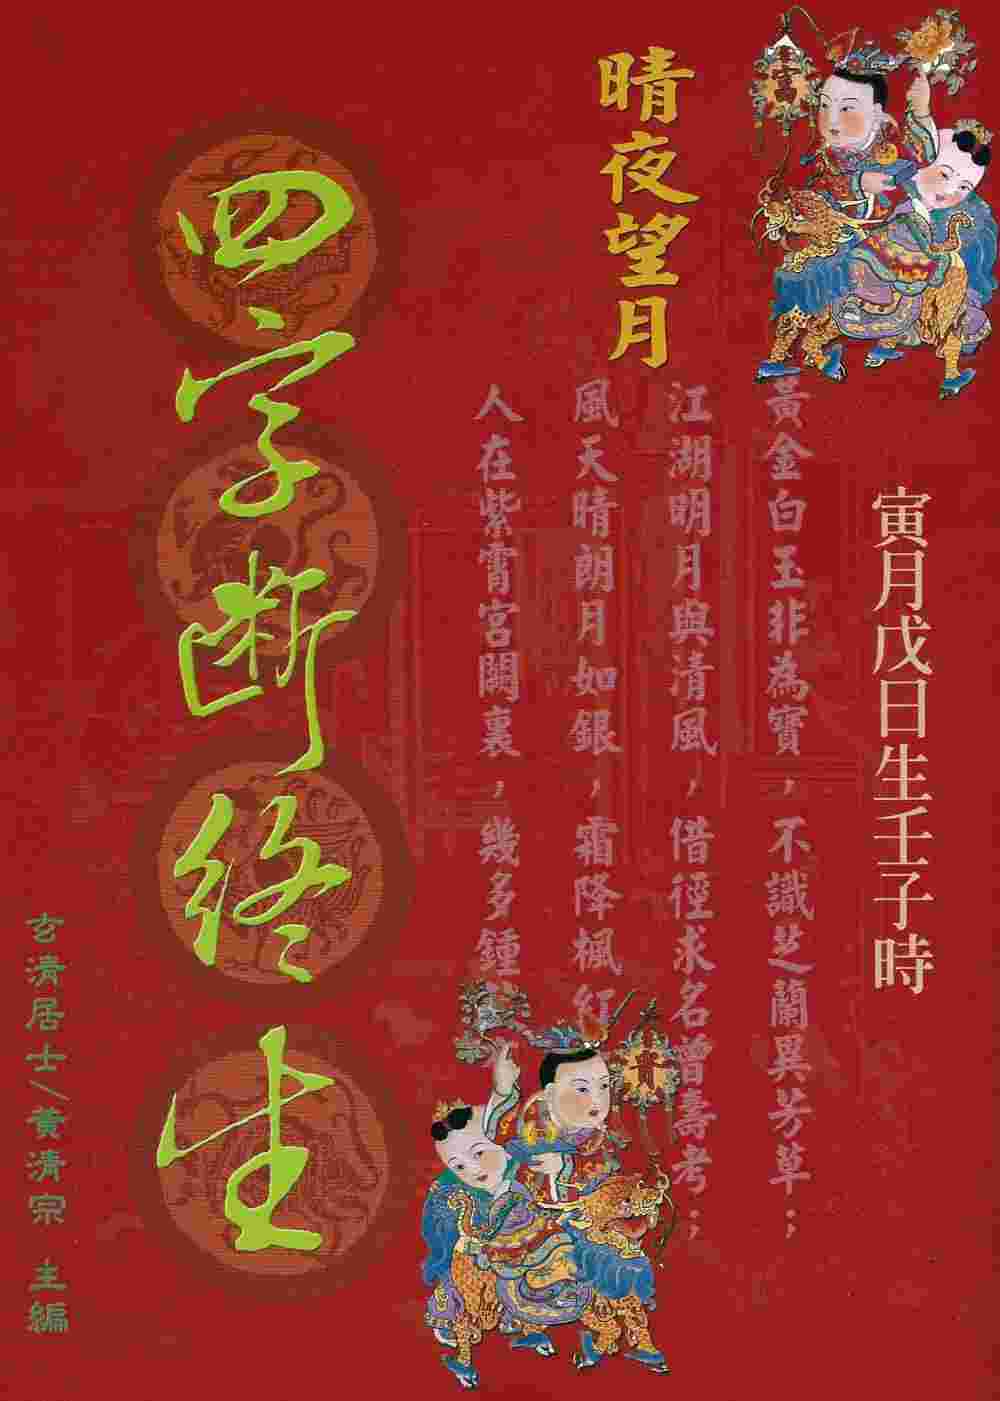 寅月戊日生壬子時
晴夜望月
黃金白玉非為寶，不識芝蘭異芳草；
江湖明月與清風，借徑求名曾壽考；
風天晴朗月如銀，霜降楓紅
人在紫霄宮闕裏，幾多鍾
四字斷終生
玄清居士／黃清宗 主編
富
貴